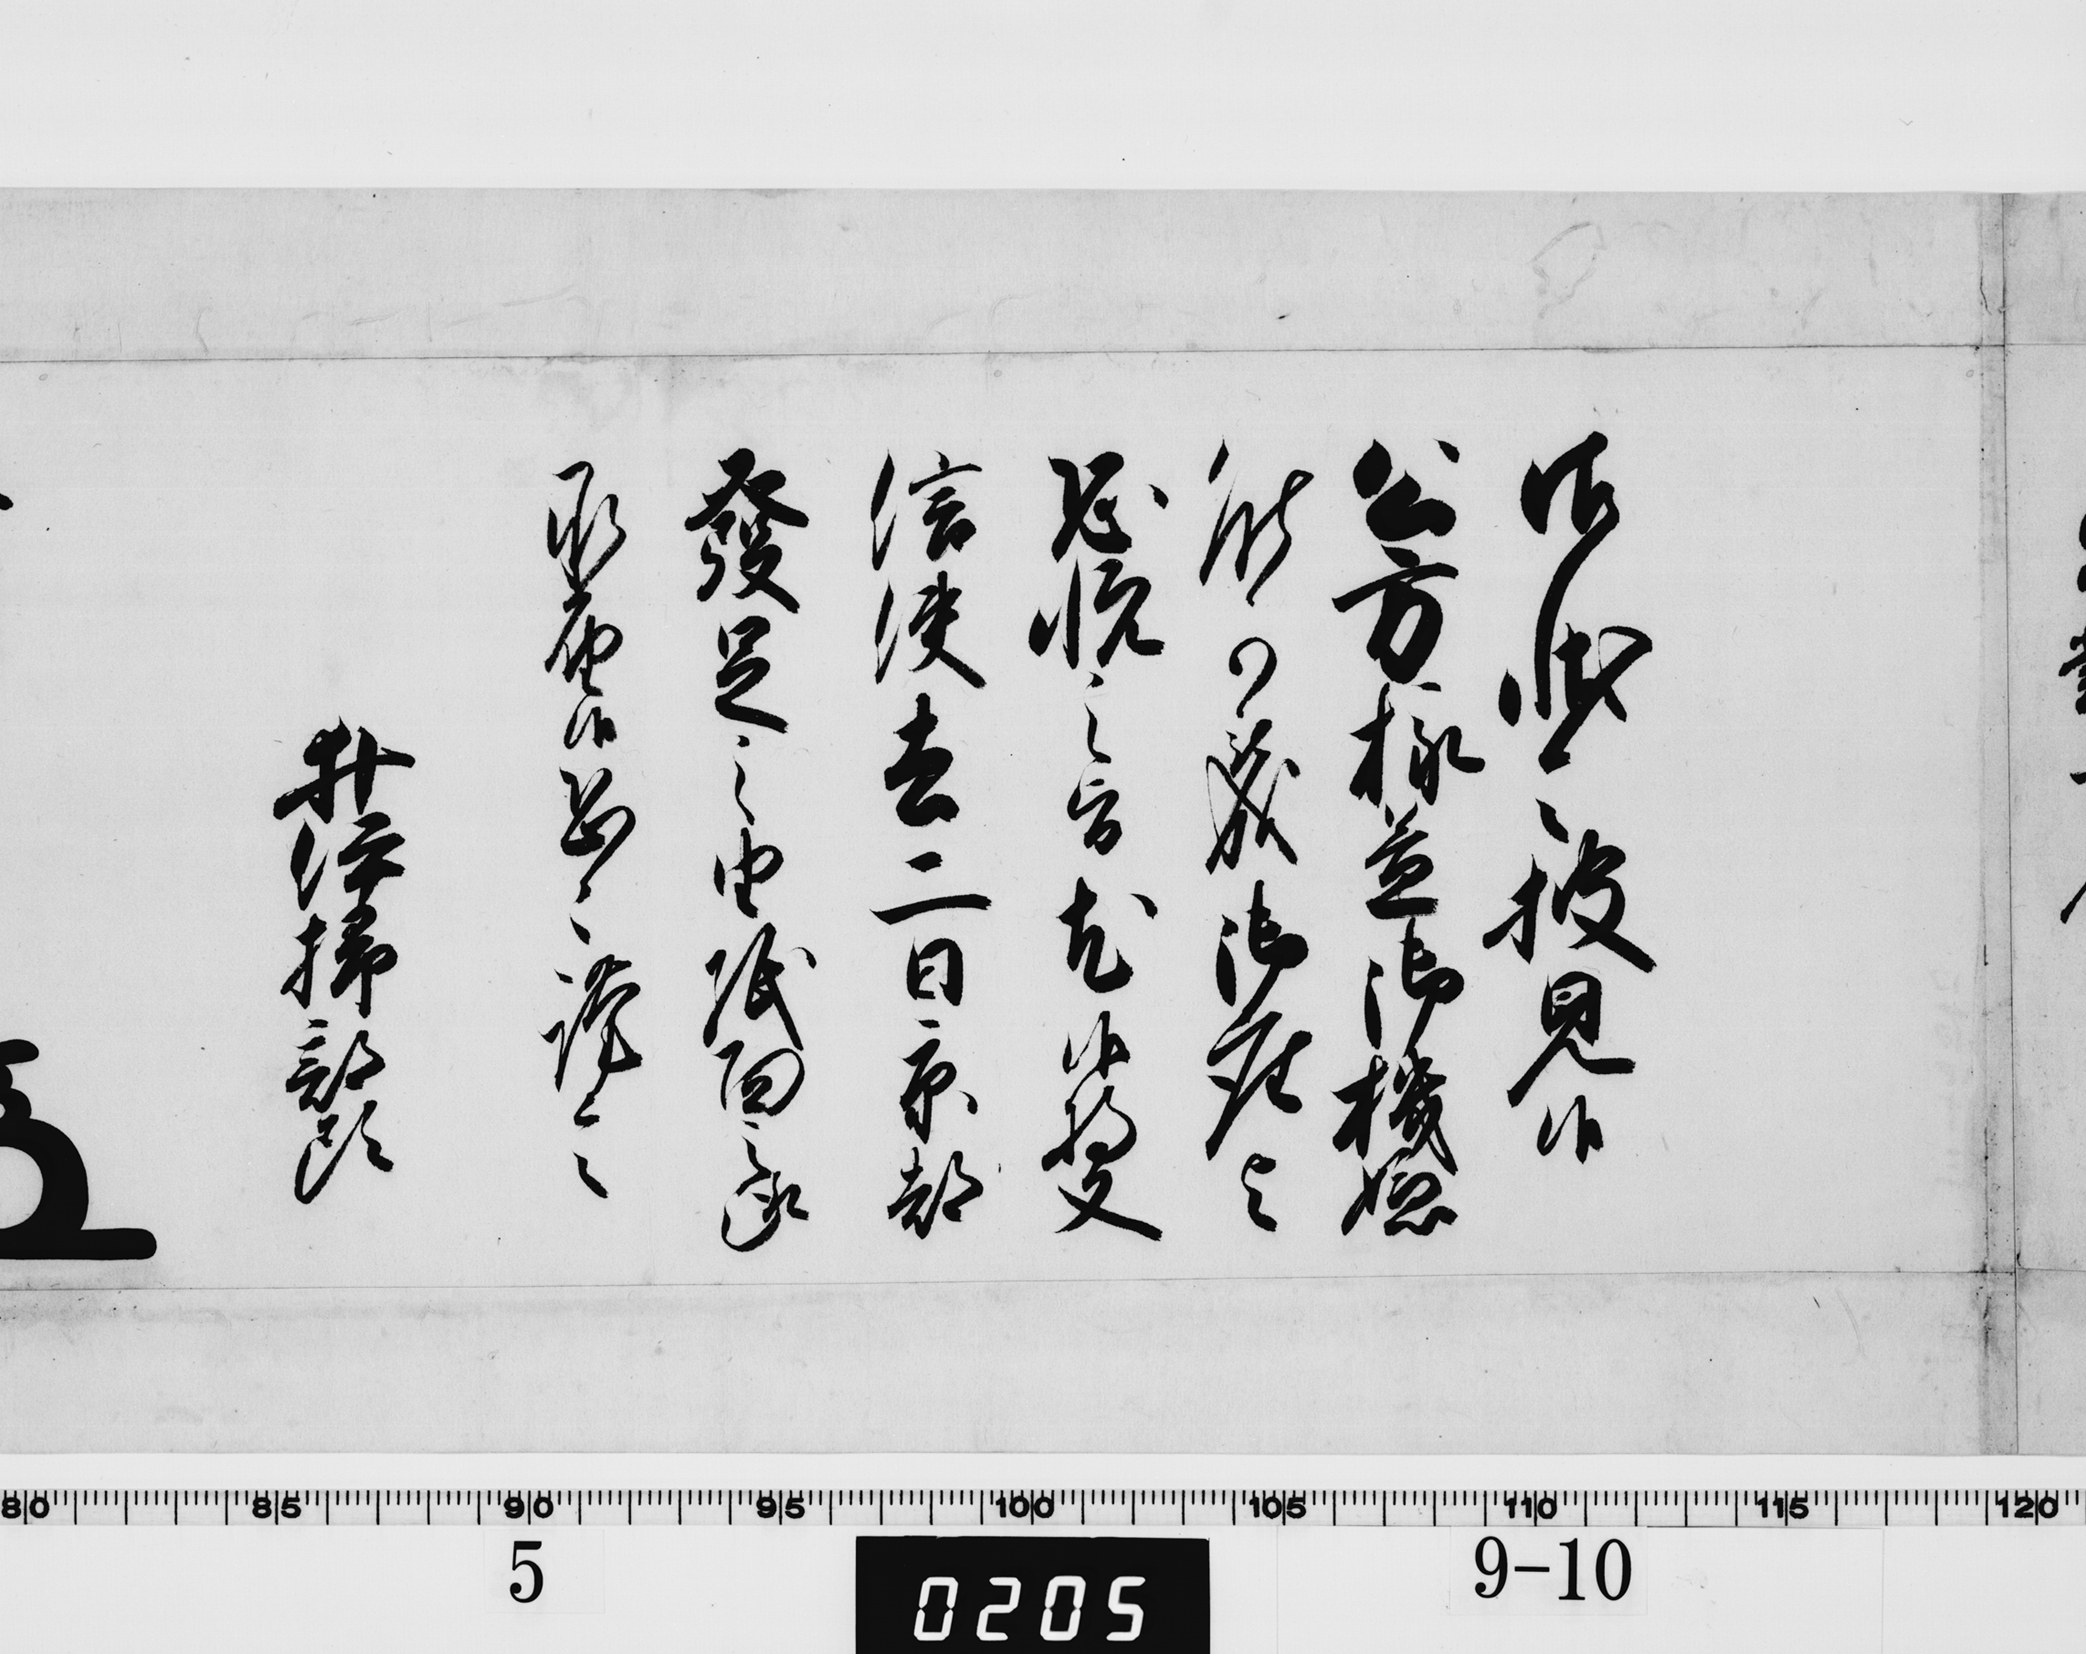 御状令披見候
公方様益御機嫌
能可被成御座与
恐悦之旨尤候将又
信使去二日京都
發足之由紙面之趣
承届候恐々謹言
井伊掃部頭
80 85 90 95 100 105 110 115 120
5 0205 9-10